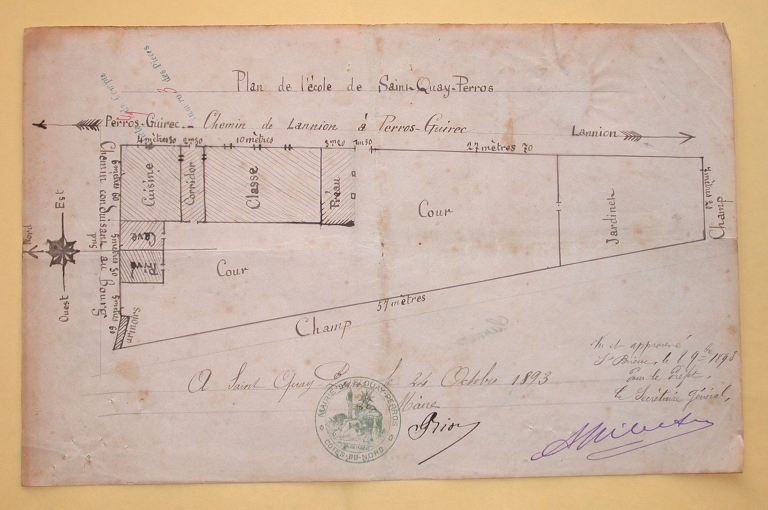 Plan de l'école de Saint-Quay-Perros
Perros-Guirec_ Chemin de Lannion à Perros-Guirec
Lannion
4 mètres 30
2m 30
10 mètres
27 mètres 70
Cuisine
Corridor
Classe
Préau
Cour
Jardinet
Champ
Chemin conduisant au Bourg
Nord
Est
Ouest
Cave
Cour
57 mètres
Champ
A Saint Quay Perros le 24 Octobre 1893
Maire
MAIRIE DE St QUAY-PERROS
CÔTES-DU-NORD
Vu et approuvé
St Brieuc, le 9bre 1893
Pour le Préfet,
Le Secrétaire Général,